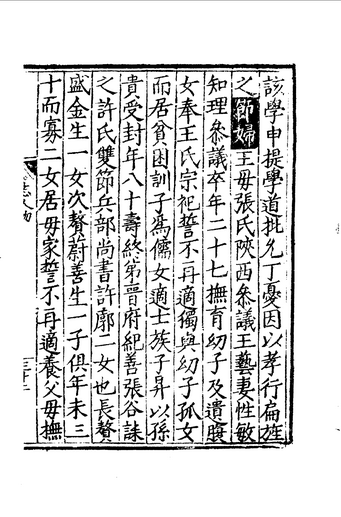 該學申提學道批允丁憂因以孝行扁旌
之節婦王母張氏陝西叅議王藝妻性敏
知理叅議卒年二十七撫育幼子及遺腹
女奉王氏宗祀誓不再適獨與幼子孤女
而居貧困訓子為儒女適士族子昇以孫
貴受封年八十壽終第晉府紀善張谷誄
之許氏雙節兵部尚書許廓二女也長贅
盛金生一女次贅蔚善生一子俱年未三
十而寡二女居母家誓不再適養父母撫